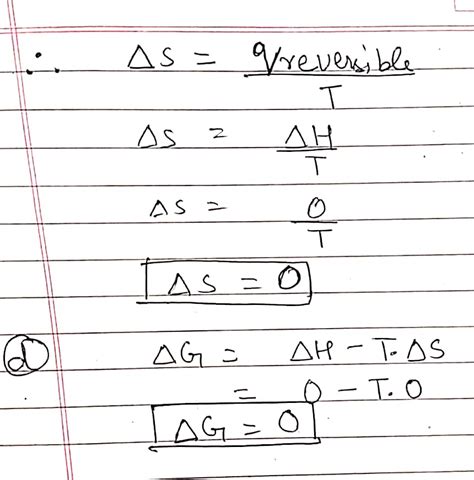 ∴ ΔS = qreversible / T
ΔS = ΔH / T
ΔS = 0 / T
ΔS = 0
(d) ΔG = ΔH - T.ΔS
= 0 - T.0
ΔG = 0